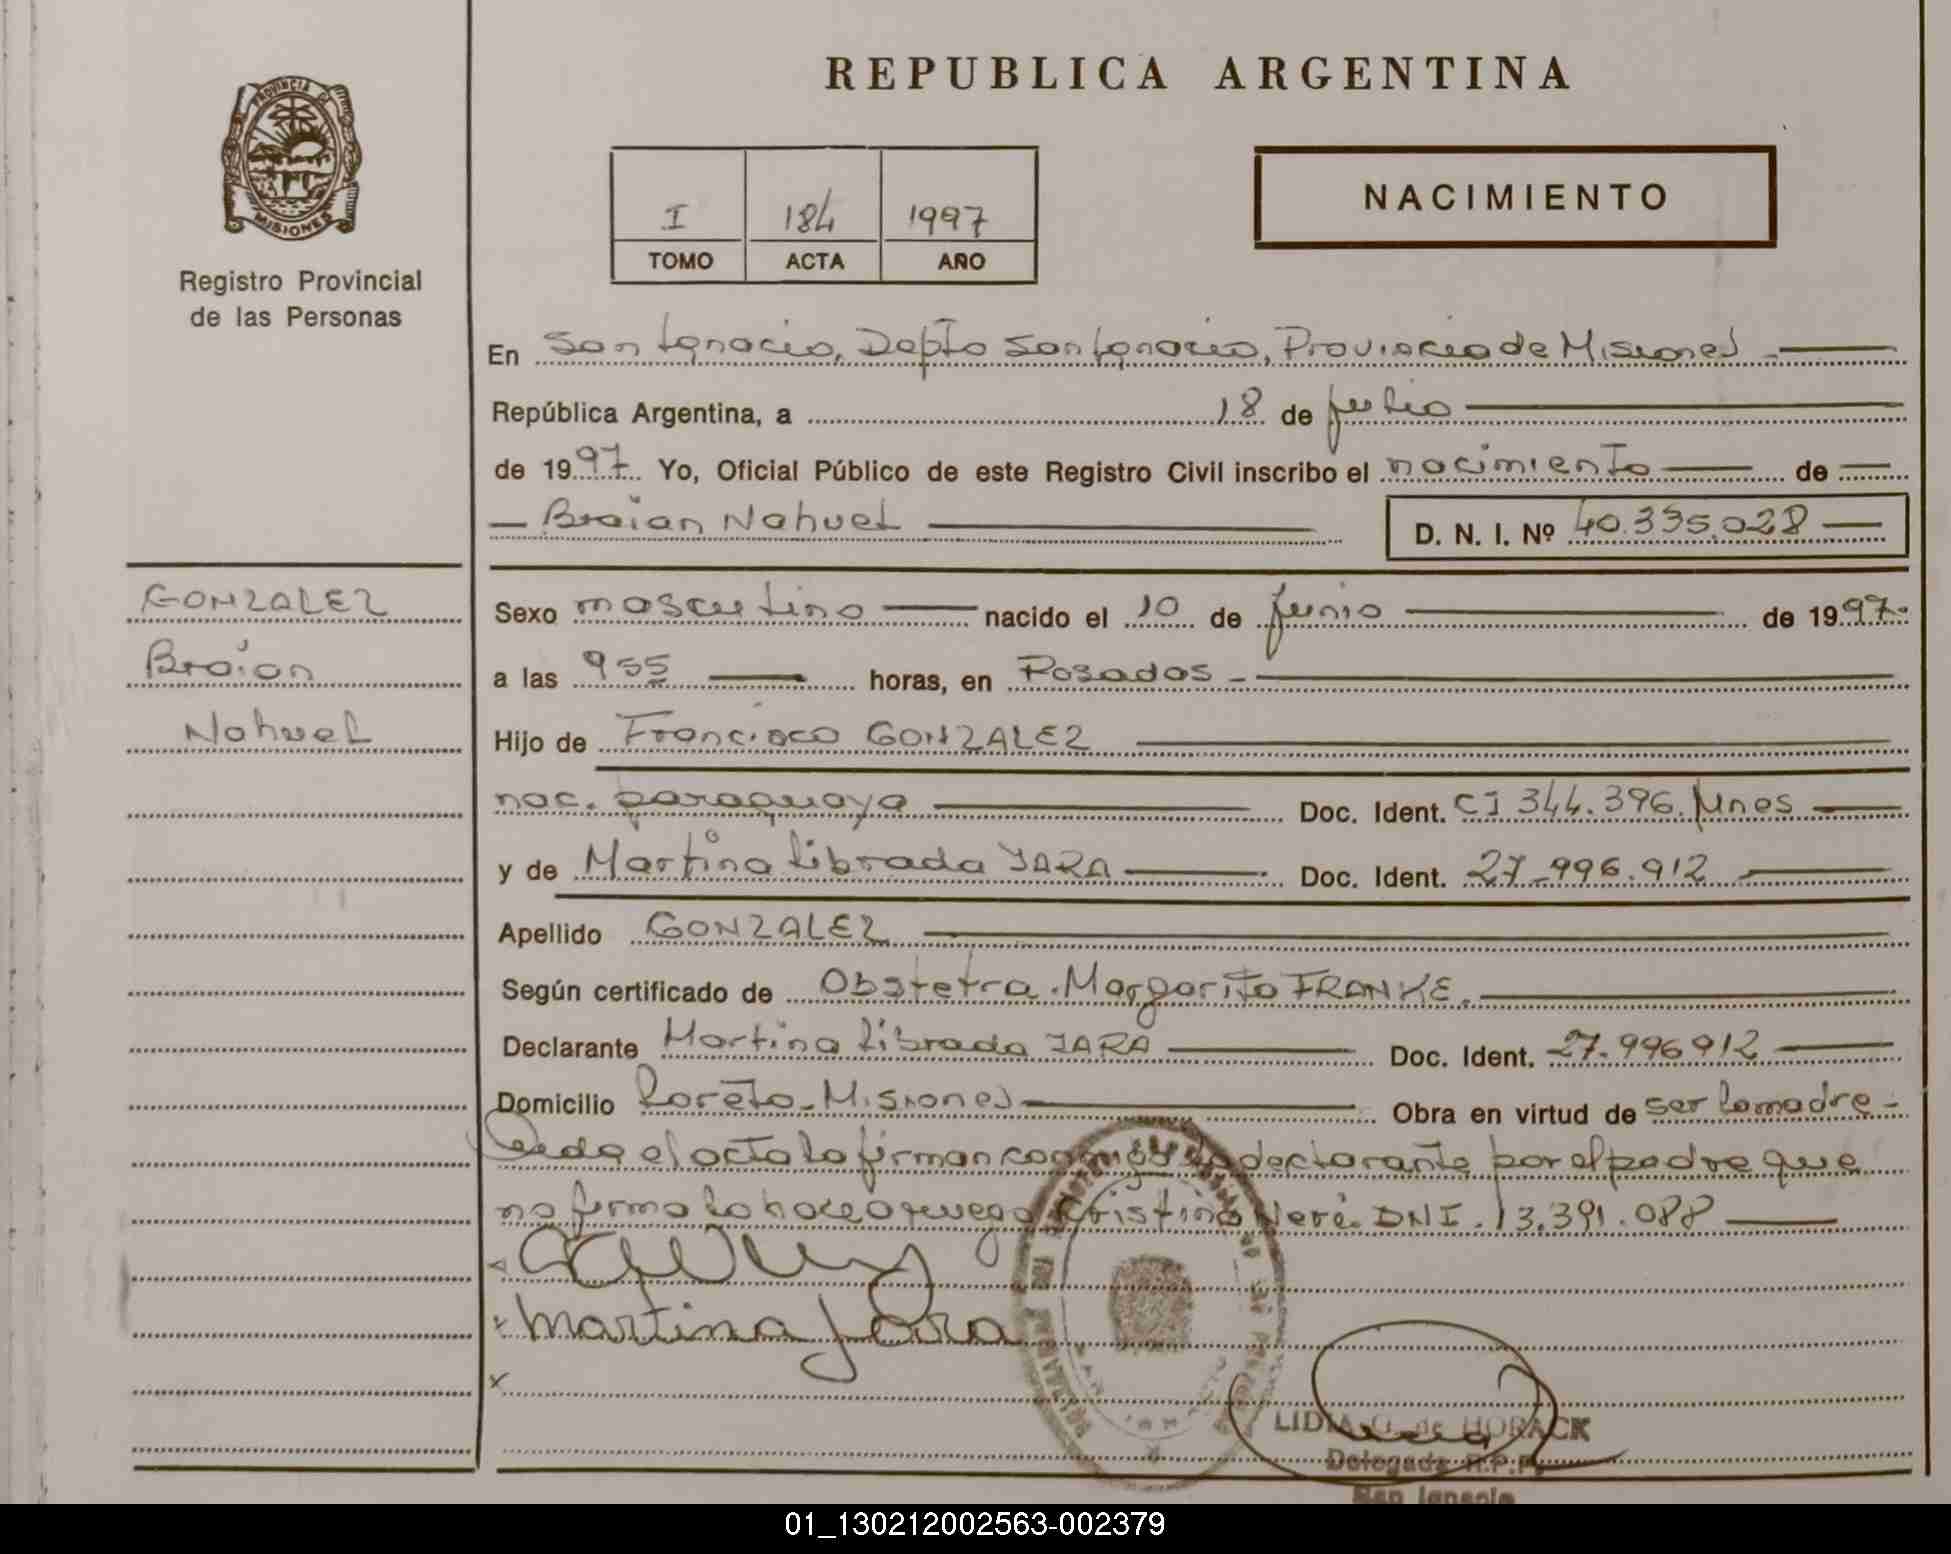 REPUBLICA ARGENTINA
PROVINCIA DE
MISIONES
Registro Provincial
de las Personas
I 184 1997
TOMO ACTA AÑO
NACIMIENTO
En San Ignacio, Depto San Ignacio, Provincia de Misiones
República Argentina, a 18 de julio
de 1997 Yo, Oficial Público de este Registro Civil inscribo el nacimiento de
Braian Nahuel D. N. I. Nº 40.335.028
GONZALEZ
Braian
Nahuel
Sexo masculino nacido el 10 de junio de 1997.
a las 9 55 horas, en Posadas
Hijo de Francisco GONZALEZ
nac. paraguaya Doc. Ident. CI 344.396. Mnes
y de Martina Librada JARA Doc. Ident. 27.996.912
Apellido GONZALEZ
Según certificado de Obstetra. Margarita FRANKE.
Declarante Martina Librada JARA Doc. Ident. 27.996912
Domicilio Loreto - Misiones Obra en virtud de ser la madre
Leida el acta la firman conmigo la declarante por el padre que
no firma lo hace a ruego Cristino Neré. DNI. 13.391.088
Martina Jara
LIDIA G. de HORACK
Delegada R.P.P.
San Ignacio
01_130212002563-002379